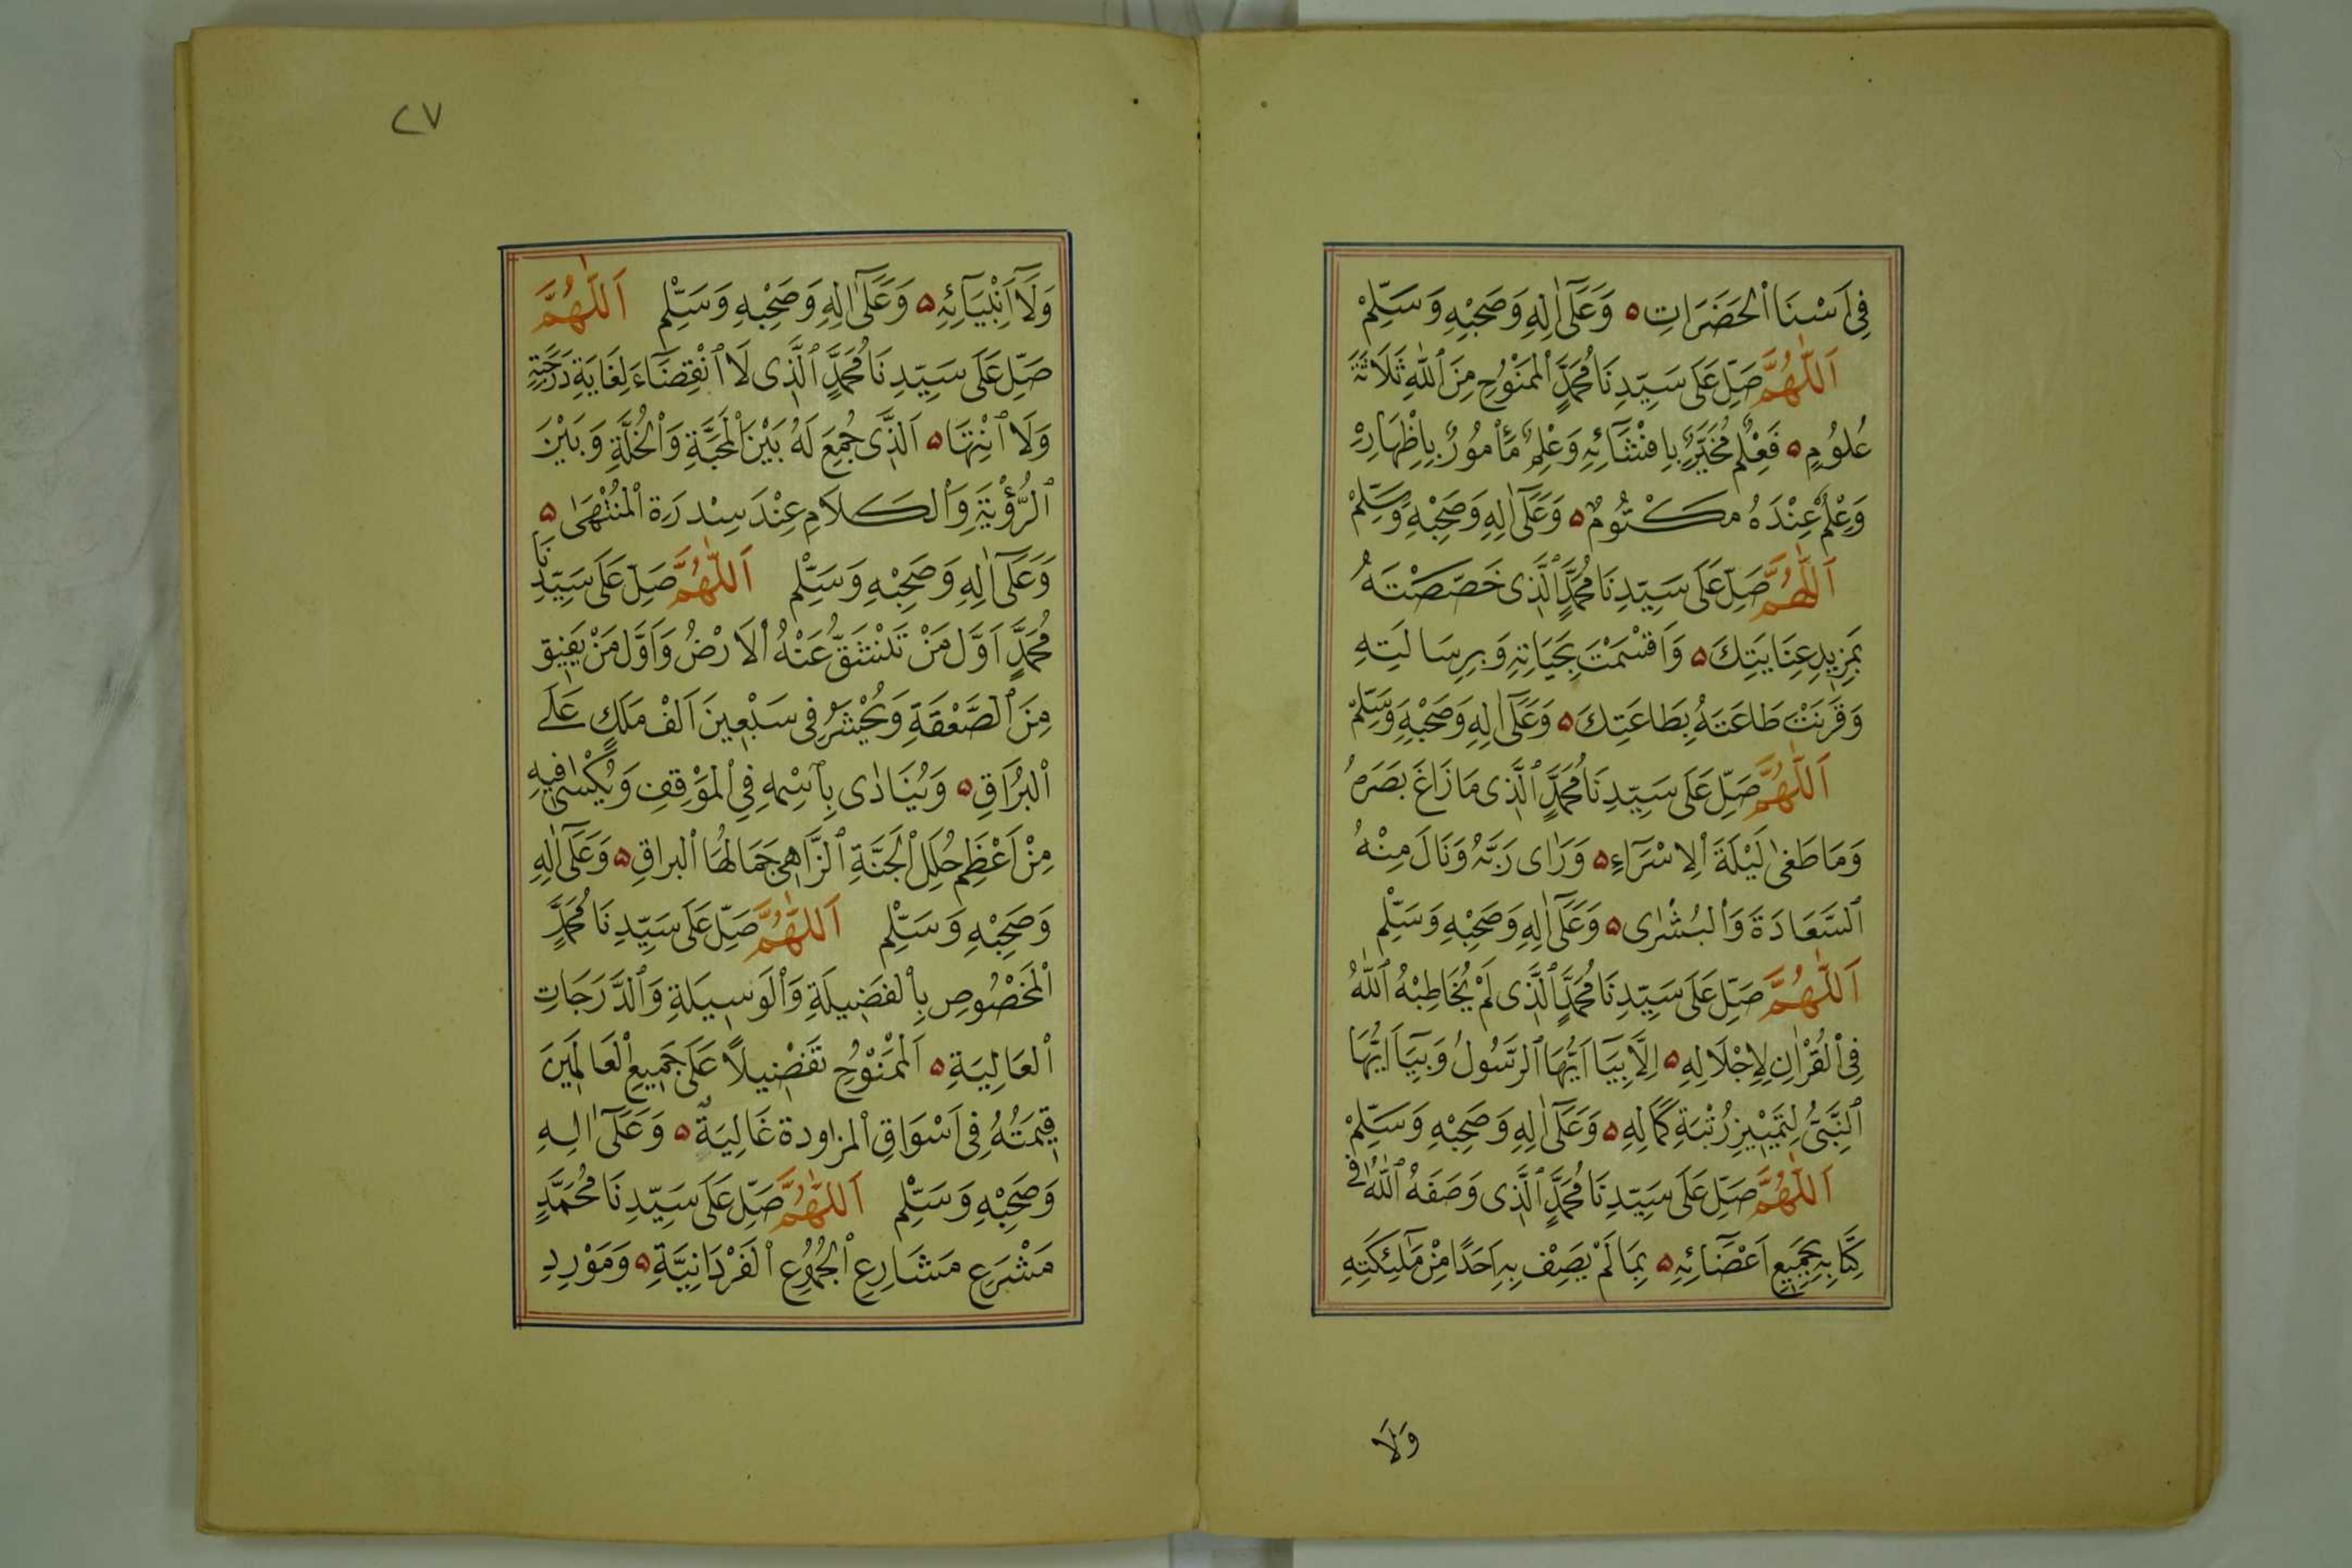 فِى اَسْنَا الْحَضَرَاتِ ۵ وَعَلَىٓ اٰلِهِ وَصَحْبِهِ وَسَلِّمْ
اَللّٰهُمَّ صَلِّ عَلَى سَيِّدِنَا مُحَمَّدٍ الْمَمْنُوحِ مِنَ اللّٰهِ ثَلَاثَةَ
عُلُومٍ ۵ فَعِلْمٌ مُخَيَّرٌ بِافْشَآئِهِ وَعِلْمٌ مَأْمُورٌ بِاِظْهَارِهِ
وَعِلْمٌ عِنْدَهُ مَكْتُومٌ ۵ وَعَلَىٓ اٰلِهِ وَصَحْبِهِ وَسَلِّمْ
اَللّٰهُمَّ صَلِّ عَلَى سَيِّدِنَا مُحَمَّدٍ الَّذِى خَصَّصْتَهُ
بِمَزِيدِ عِنَايَتِكَ ۵ وَاَقْسَمْتَ بِحَيَاتِهِ وَبِرِسَالَتِهِ
وَقَرَنْتَ طَاعَتَهُ بِطَاعَتِكَ ۵ وَعَلَىٓ اٰلِهِ وَصَحْبِهِ وَسَلِّمْ
اَللّٰهُمَّ صَلِّ عَلَى سَيِّدِنَا مُحَمَّدٍ الَّذِى مَا زَاغَ بَصَرُهُ
وَمَا طَغٰى لَيْلَةَ الْاِسْرَآءِ ۵ وَرَاٰى رَبَّهُ وَنَالَ مِنْهُ
السَّعَادَةَ وَالْبُشْرٰى ۵ وَعَلَىٓ اٰلِهِ وَصَحْبِهِ وَسَلِّمْ
اَللّٰهُمَّ صَلِّ عَلَى سَيِّدِنَا مُحَمَّدٍ الَّذِى لَمْ يُخَاطِبْهُ اللّٰهُ
فِى الْقُرْاٰنِ لِاِجْلَالِهِ ۵ اِلَّا بِيَآ اَيُّهَا الرَّسُولُ وَبِيَآ اَيُّهَا
النَّبِىُّ لِتَمْيِيزِ رُتْبَةِ كَمَالِهِ ۵ وَعَلَىٓ اٰلِهِ وَصَحْبِهِ وَسَلِّمْ
اَللّٰهُمَّ صَلِّ عَلَى سَيِّدِنَا مُحَمَّدٍ الَّذِى وَصَفَهُ اللّٰهُ فِى
كِتَابِهِ بِجَمِيعِ اَعْضَآئِهِ ۵ بِمَا لَمْ يَصِفْ بِهِ اَحَدًا مِنْ مَلٰٓئِكَتِهِ
وَلَا
٢٧
وَلَآ اَنْبِيَآئِهِ ۵ وَعَلَىٓ اٰلِهِ وَصَحْبِهِ وَسَلِّمْ اَللّٰهُمَّ
صَلِّ عَلَى سَيِّدِنَا مُحَمَّدٍ الَّذِى لَا انْقِضَآءَ لِغَايَةِ دَرَجَتِهِ
وَلَا انْتِهَا ۵ اَلَّذِى جُمِعَ لَهُ بَيْنَ الْمَحَبَّةِ وَالْخُلَّةِ وَبَيْنَ
الرُّؤْيَةِ وَالْكَلَامِ عِنْدَ سِدْرَةِ الْمُنْتَهٰى ۵
وَعَلَىٓ اٰلِهِ وَصَحْبِهِ وَسَلِّمْ اَللّٰهُمَّ صَلِّ عَلَى سَيِّدِنَا
مُحَمَّدٍ اَوَّلِ مَنْ تَنْشَقُّ عَنْهُ الْاَرْضُ وَاَوَّلِ مَنْ يَفِيقُ
مِنَ الصَّعْقَةِ وَيُحْشَرُ فِى سَبْعِينَ اَلْفْ مَلَكٍ عَلَى
الْبُرَاقِ ۵ وَيُنَادٰى بِاسْمِهِ فِى الْمَوْقِفِ وَيُكْسٰى فِيهِ
مِنْ اَعْظَمِ حُلَلِ الْجَنَّةِ الزَّاهِى جَمَالُهَا الْبراقِ ۵ وَعَلَىٓ اٰلِهِ
وَصَحْبِهِ وَسَلِّمْ اَللّٰهُمَّ صَلِّ عَلَى سَيِّدِنَا مُحَمَّدٍ
الْمَخْصُوصِ بِالْفَضِيلَةِ وَالْوَسِيلَةِ وَالدَّرَجَاتِ
الْعَالِيَةِ ۵ اَلْمَمْنُوحِ تَفْضِيلًا عَلَى جَمِيعِ الْعَالَمِينَ
قِيمَتُهُ فِى اَسْوَاقِ الْمزاودة غَالِيَةٌ ۵ وَعَلَىٓ اٰلِهِ
وَصَحْبِهِ وَسَلِّمْ اَللّٰهُمَّ صَلِّ عَلَى سَيِّدِنَا مُحَمَّدٍ
مَشْرَعِ مَشَارِعِ الْجُمُوعِ الْفَرْدَانِيَّةِ ۵ وَمَوْرِدِ